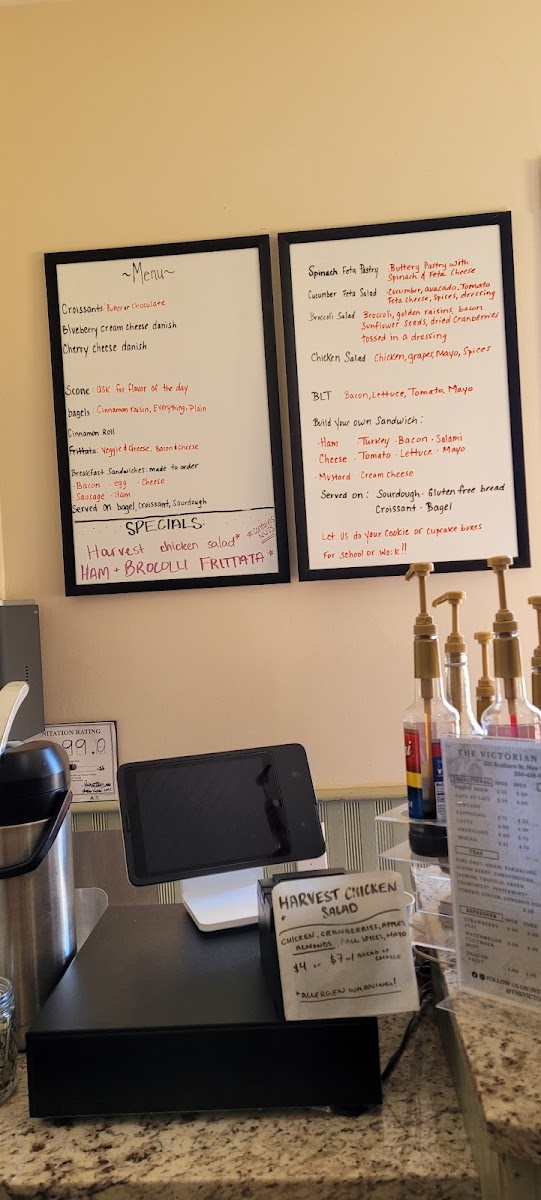 ~Menu~
Croissants: Butter or chocolate
Blueberry cream cheese danish
Cherry cheese danish
Scone: ask for flavor of the day
bagels: Cinnamon raisin, Everything, Plain
Cinnamon Roll
Frittata: Veggie & Cheese, Bacon & Cheese
Breakfast Sandwiches: made to order
·Bacon ·egg ·Cheese
·Sausage ·Ham
Served on bagel, croissant, Sourdough
SPECIALS:
Harvest chicken salad*
*contains NUTS
HAM + BROCOLLI FRITTATA *
Spinach Feta Pastry Buttery Pastry with
Spinach & Feta Cheese
Cucumber Feta Salad Cucumber, avacado, Tomato
Feta cheese, Spices, dressing
Broccoli Salad Broccoli, golden raisins, bacon
Sunflower Seeds, dried Cranberries
tossed in a dressing
Chicken Salad Chicken, grapes, Mayo, Spices
BLT Bacon, Lettuce, Tomato, Mayo
Build your own Sandwich:
·Ham ·Turkey ·Bacon ·Salami
·Cheese ·Tomato ·Lettuce ·Mayo
·Mustard ·Cream Cheese
Served on: Sourdough · Gluten free bread
Croissant · Bagel
Let us do your Cookie or Cupcake boxes
for School or Work!!
NITATION RATING
99.0
HARVEST CHICKEN
SALAD
CHICKEN, CRANBERRIES, APPLES
ALMONDS, FALL SPICES, MAYO
$4 or $7 w/ BREAD or
*ALLERGEN WARNING!
THE VICTORIAN
TRADITIONAL
CAFE AU LAIT
CAPPUCINO
LATTE
AMERICANO
MOCHA
TEAS
REFRESHER
STRAWBERRY
ACAI
WATERMELON
CUCUMBER
MINT
DRAGON
FRUIT
FOLLOW US ON INS
@THEVICTOR